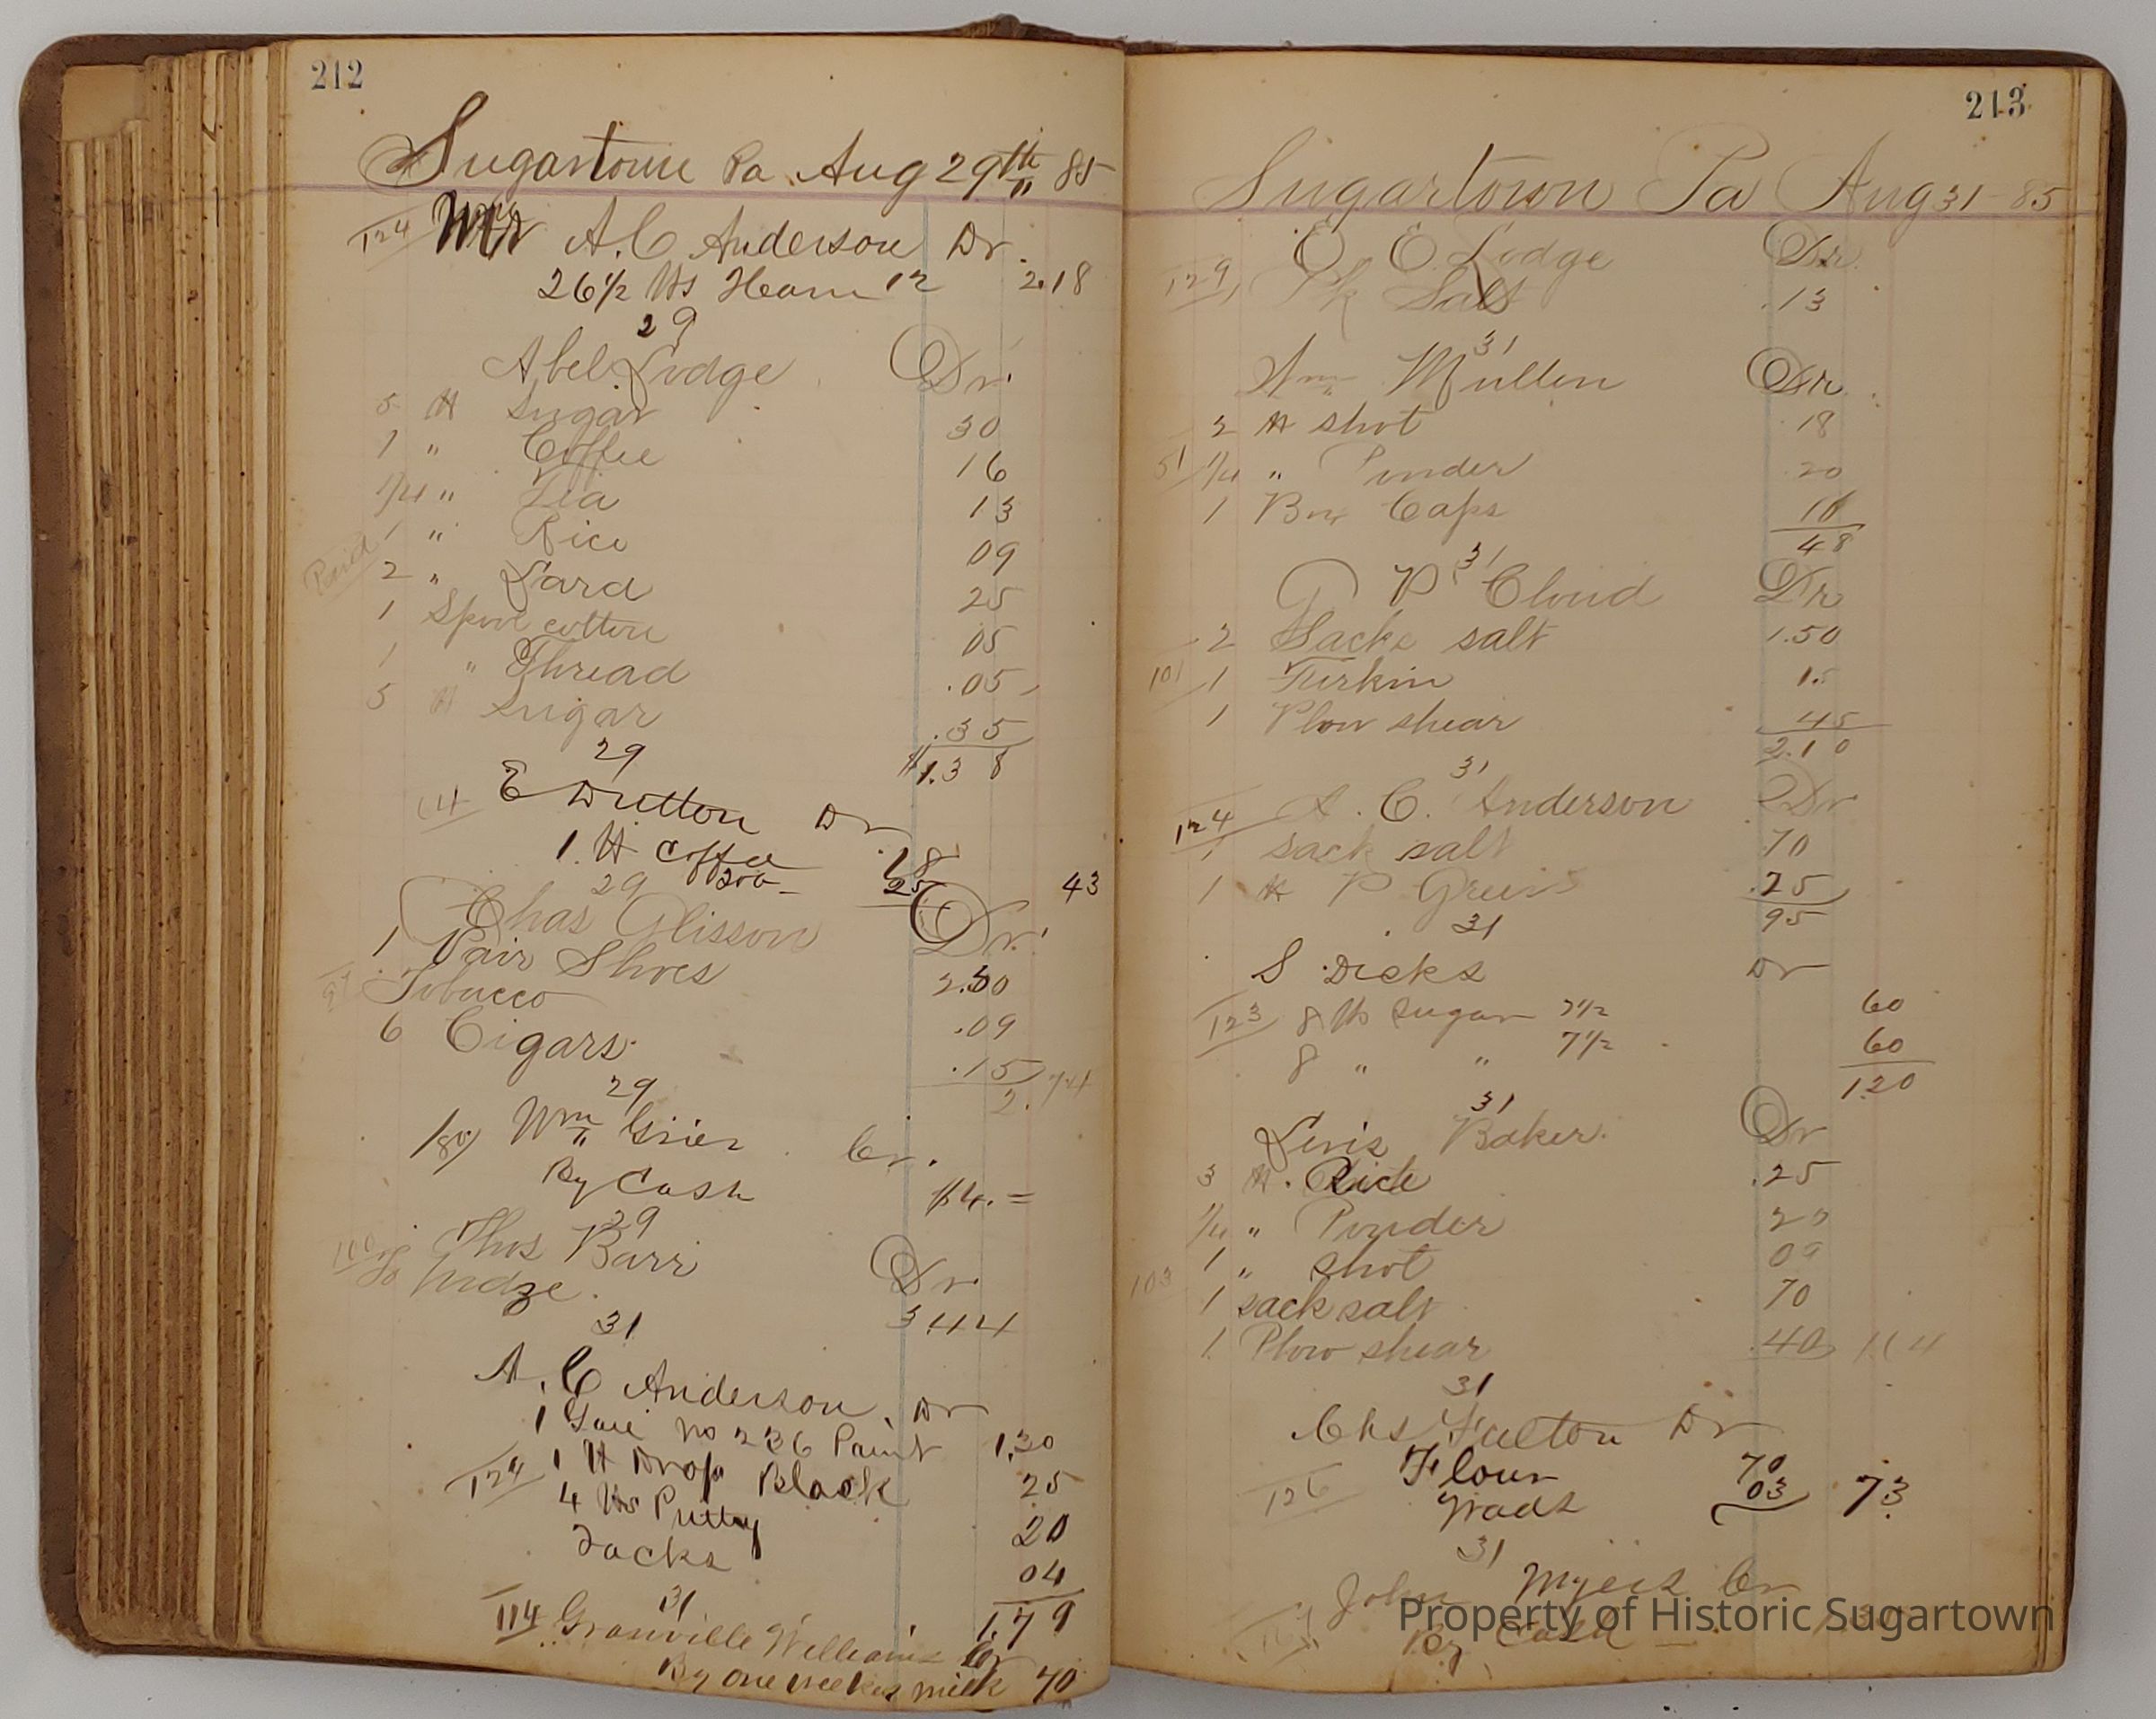 212
Sugartown Pa Aug 29th 85
124 Mr A. C Anderson Dr.
26 1/2 lbs Ham 12 2.18
29
Abel Lodge Dr.
5 lb Sugar 30
1 " Coffee 16
1/4 " Tea 13
Paid 1 " Rice 09
2 " Lard 25
1 Spool cotton 05
1 " Thread .05
5 lb Sugar .35
$1.38
29
E Dutton Dr
1 lb Coffee .18
25 43
29
Chas Glisson Dr.
1 Pair Shoes 2.50
Tobacco .09
6 Cigars .15
2.74
29
180 Wm Grier Cr.
By Cash $4. =
29
Thos Barr Dr
3.44
31
A. C Anderson Dr
1 no 236 Paint 1.30
124 1 lb Drop Black 25
4 lbs Putty 20
Tacks 04
1.79
31
114 Granville Williams Cr
By one weekes milk 70
213
Sugartown Pa Aug 31 - 85
E. E. Lodge Dr.
129 Pk Salt .13
31
Wm Mullen Dr.
2 lb shot 18
51 1/4 " Powder 20
1 Box Caps 10
48
31
P Cloud Dr
2 Sacks salt 1.50
101 1 Firkin 15
1 Plow shear 45
2.10
31
A. C. Anderson Dr
124
1 sack salt 70
1 lb P Green .25
95
31
S Dicks Dr
123 8 lb Sugar 7 1/2 60
8 " " 7 1/2 60
1.20
31
Levis Baker. Dr
3 lb. Rice .25
1/4 " Powder 20
1 " shot 09
103 1 sack salt 70
1 Plow shear .40 1.64
31
Chs Fulton Dr
Flour 70
126 Wads 03 73
31
John Myers Cr
By Cash
Property of Historic Sugartown